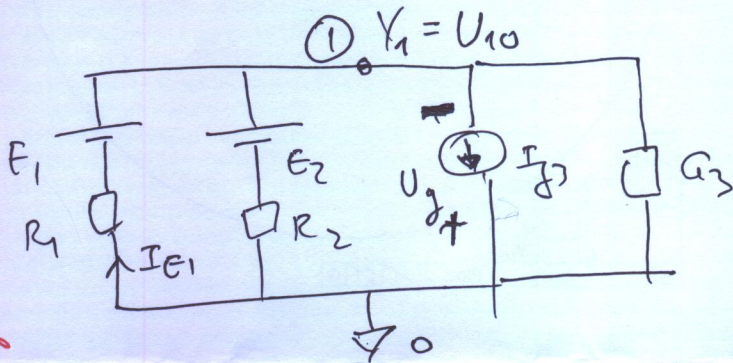 ① V₁ = U₁₀
E₁
E₂
U_g
I_g3
G₃
R₁
R₂
I_E1
0